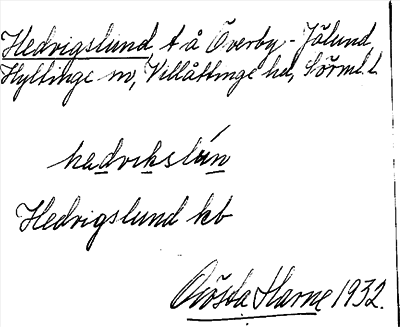 Hedvigslund t å Överby-Jälund,
Hyltinge sn, Villåttinge hd, Sörml. l.
hedvikslún
Hedvigslund kb
Harne 1932.